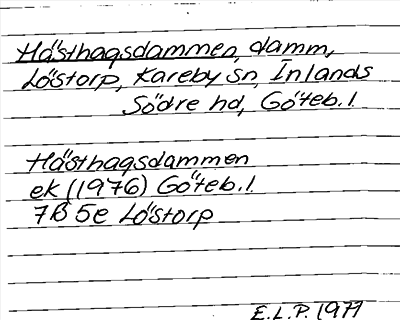 Hästhagsdammen, damm,
Löstorp, Kareby sn, Inlands
Södre hd, Göteb. l.
Hästhagsdammen
ek (1976) Göteb. l.
7B 5e Löstorp
E.L.P. 1977